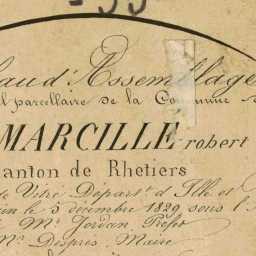 - 33
leau d'Assemblage
l parcellaire de la Commune d
MARCILLÉ robert
anton de Rhetiers
de Vitré Départ.t d'Ille et
in le 5 décembre 1829 sous l'
Mr. Jordan Préfet
Mr. Després Maire